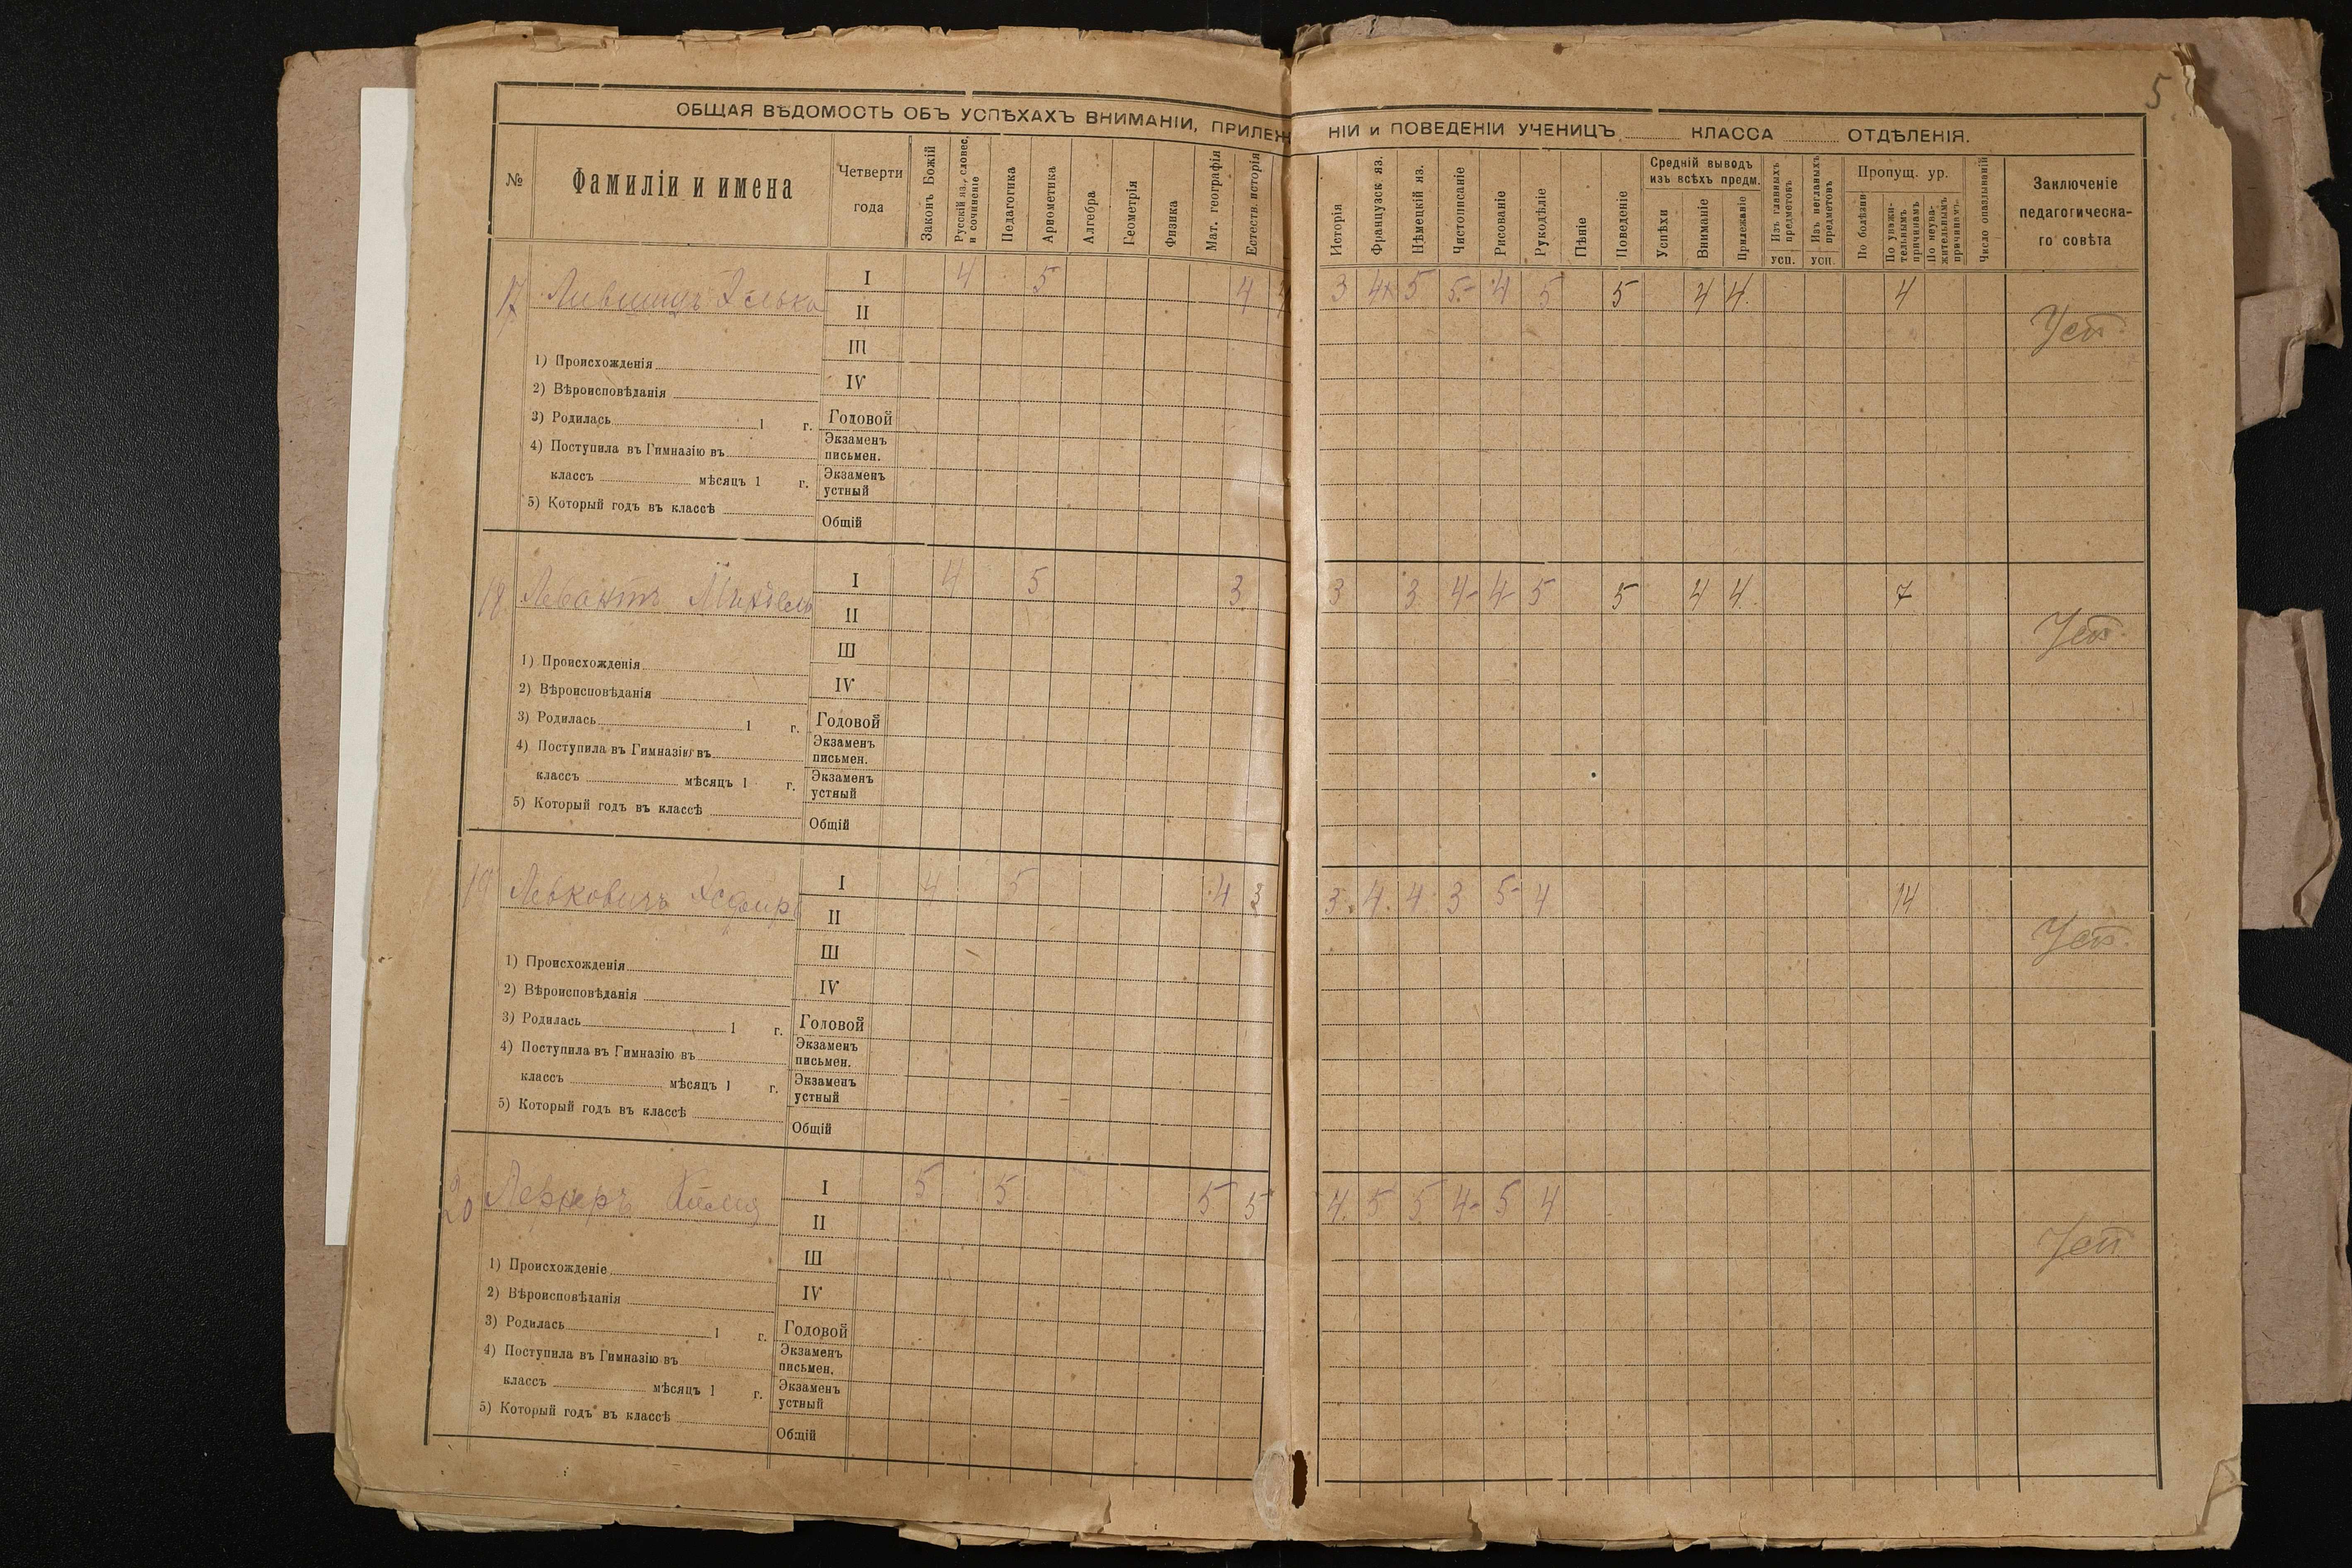 5
ОБЩАЯ ВѢДОМОСТЬ ОБЪ УСПѢХАХЪ ВНИМАНІИ, ПРИЛЕЖ НІИ и ПОВЕДЕНІИ УЧЕНИЦЪ КЛАССА ОТДѢЛЕНІЯ.
№ Фамиліи и имена Четверти года Законъ Божій Русскій яз., словес. и сочиненіе Педагогика Ариѳметика Алгебра Геометрія Физика Мат. географія Естеств. исторія Исторія Французск. яз. Нѣмецкій яз. Чистописаніе Рисованіе Рукодѣліе Пѣніе Поведеніе Средній выводъ изъ всѣхъ предм. Успѣхи Вниманіе Прилежаніе Изъ главныхъ предметовъ усп. Изъ неглавныхъ предметовъ усп. Пропущ. ур. По болѣзни По уважительнымъ причинамъ По неуважительнымъ причинамъ Число опаздываній Заключеніе педагогическаго совѣта
17 Лившицъ I 4 5 4 4 3 4 5 5- 4 5 5 4 4 4
II Усп.
III
1) Происхожденія
IV
2) Вѣроисповѣданія
3) Родилась 1 г. Годовой
4) Поступила въ Гимназію въ Экзаменъ письмен.
классъ мѣсяцъ 1 г. Экзаменъ устный
5) Который годъ въ классѣ
Общій
18 Левантъ I 4 5 3 3 3 4- 4- 5 5 4 4 7
II Усп.
III
1) Происхожденія
IV
2) Вѣроисповѣданія
3) Родилась 1 г. Годовой
4) Поступила въ Гимназію въ Экзаменъ письмен.
классъ мѣсяцъ 1 г. Экзаменъ устный
5) Который годъ въ классѣ
Общій
19 Левковичъ I 4 5 4 3 3 4 4 3 5- 4 14
II Усп.
III
1) Происхожденія
IV
2) Вѣроисповѣданія
3) Родилась 1 г. Годовой
4) Поступила въ Гимназію въ Экзаменъ письмен.
классъ мѣсяцъ 1 г. Экзаменъ устный
5) Который годъ въ классѣ
Общій
20 I 5 5 5 5 4 5 5 4- 5 4
II Усп.
III
1) Происхожденіе
IV
2) Вѣроисповѣданія
3) Родилась 1 г. Годовой
4) Поступила въ Гимназію въ Экзаменъ письмен.
классъ мѣсяцъ 1 г. Экзаменъ устный
5) Который годъ въ классѣ
Общій